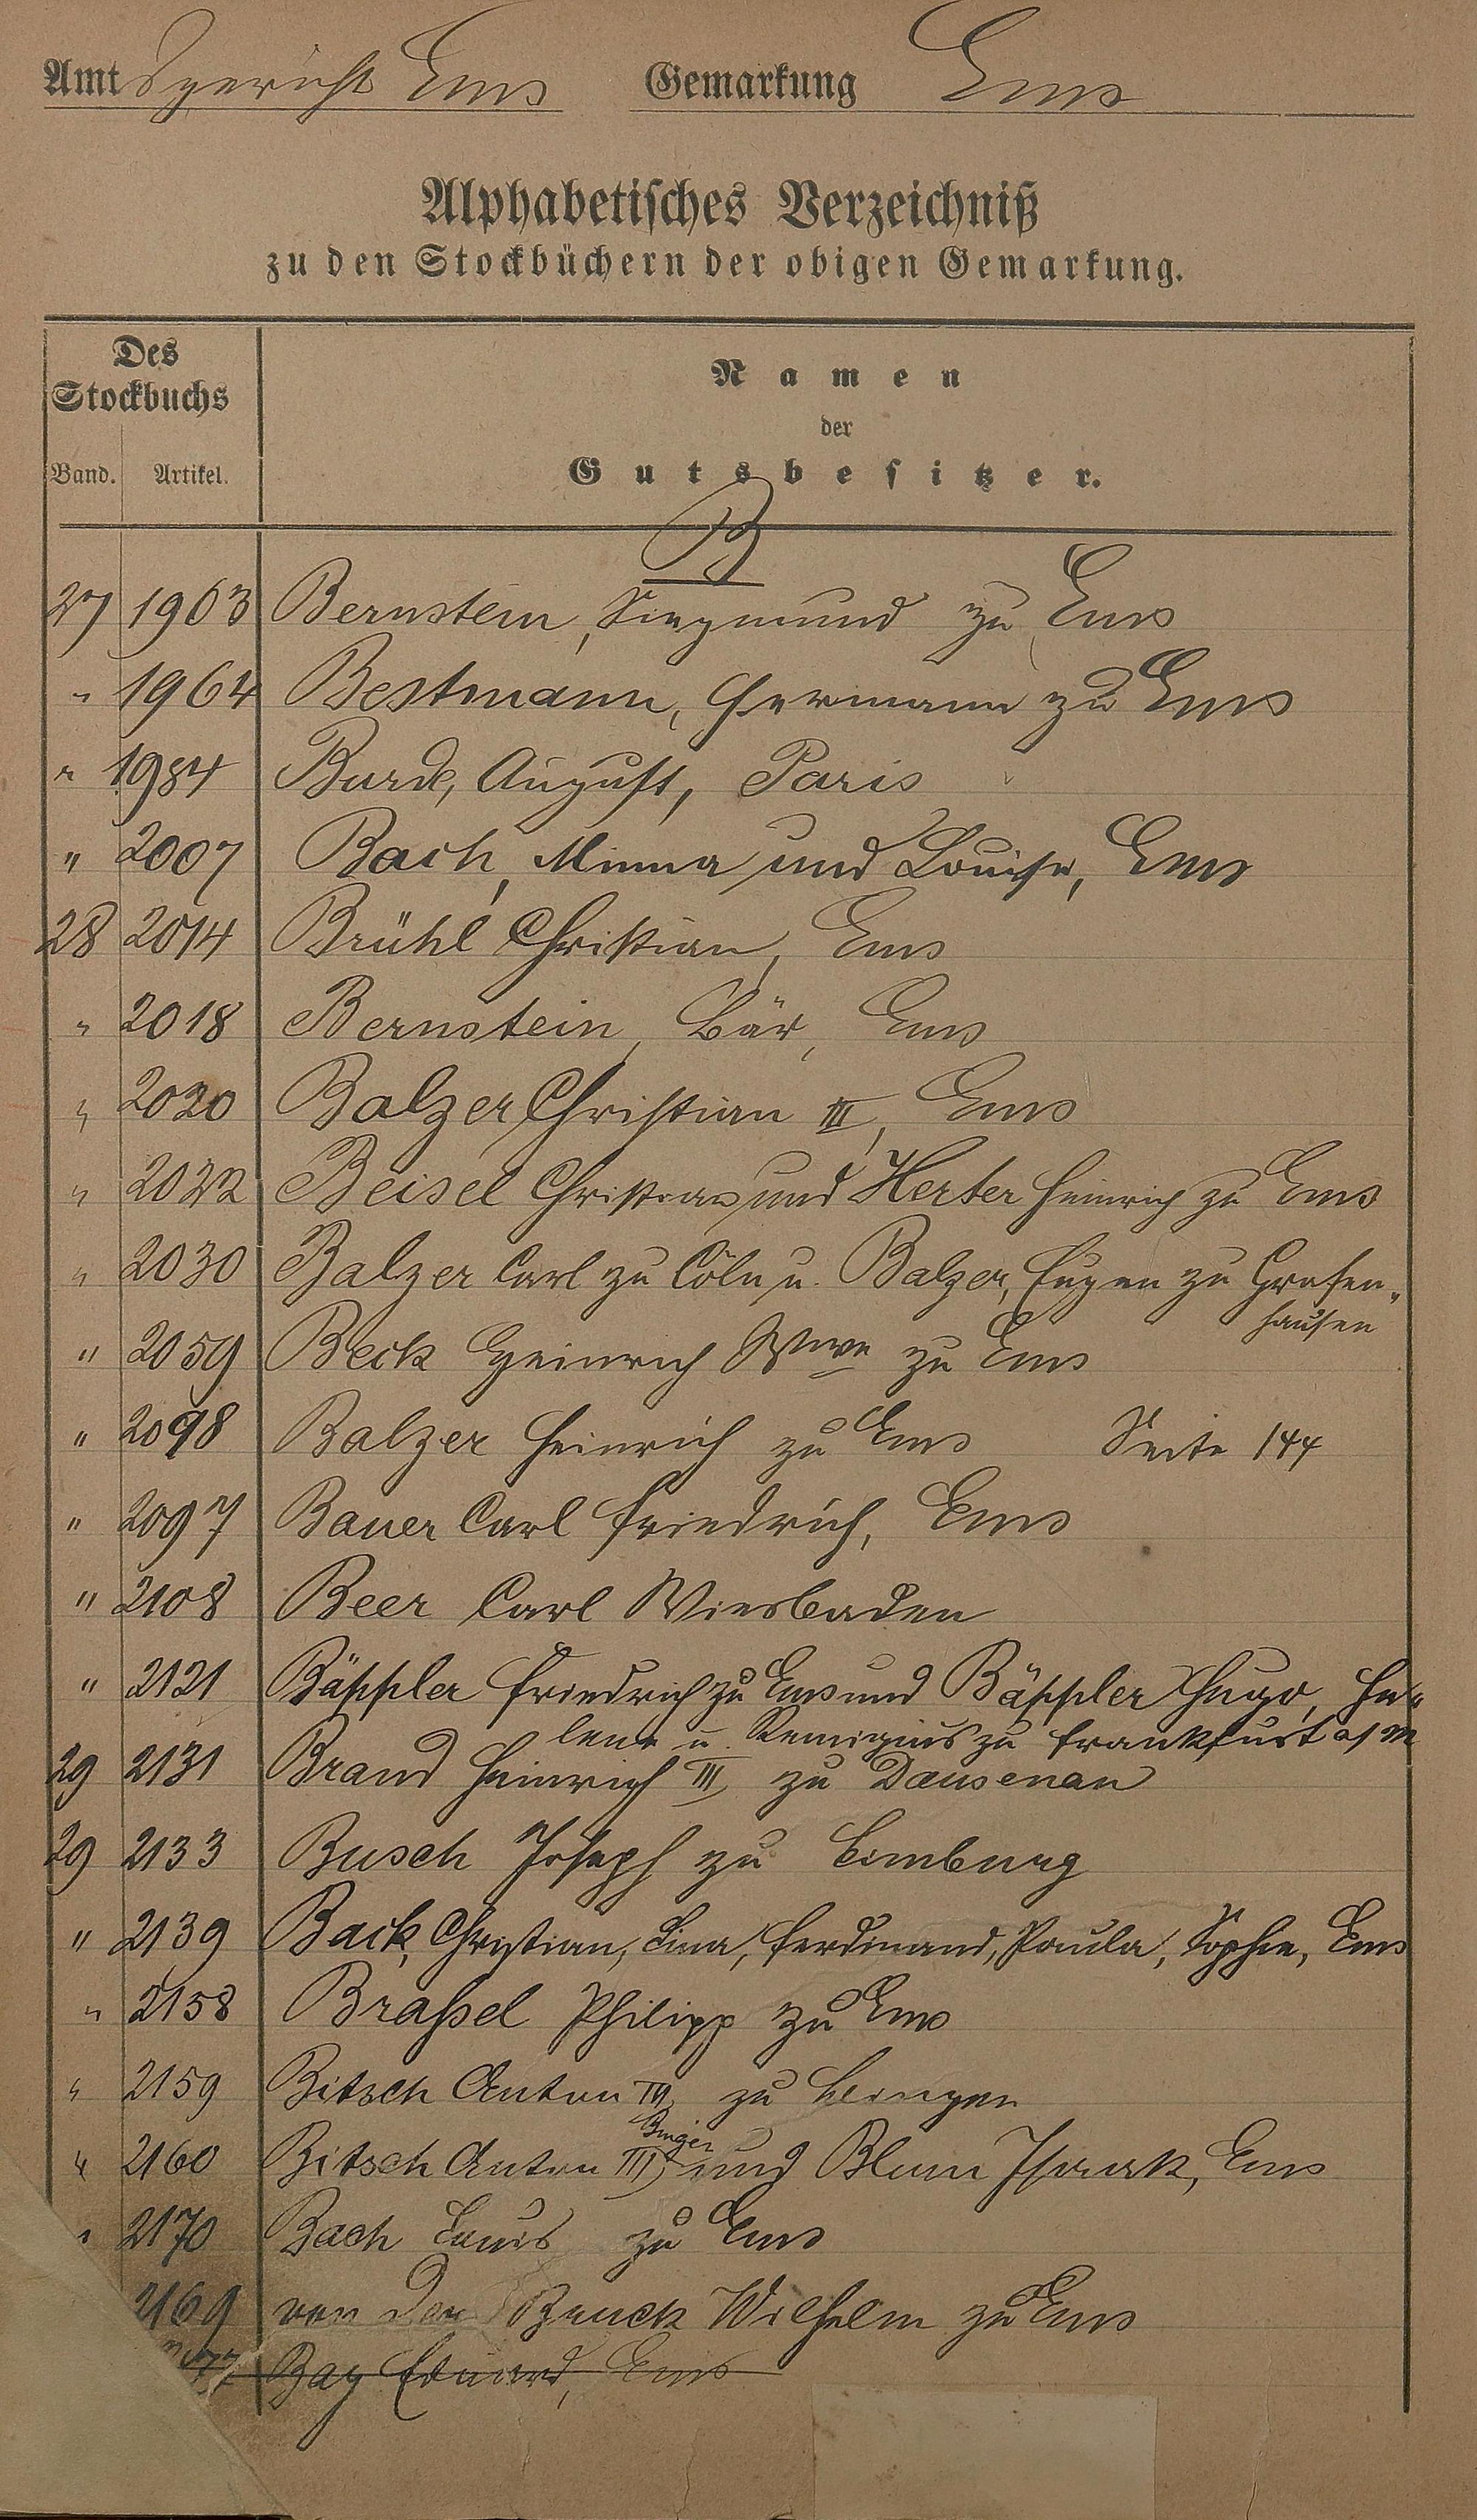 Amtsgericht Ems Gemarkung Ems
Alphabetisches Verzeichniß
zu den Stockbüchern der obigen Gemarkung.
Des
Stockbuchs
Band. Artikel.
Namen
der
Gutsbesitzer.
B
27 1963 Bernstein, Siegmund zu Ems
" 1964 Bestmann, Hermann zu Ems
" 1984 Burde, August, Paris
" 2007 Bach, Minna und Louise, Ems
28 2014 Brühl Christian, Ems
" 2018 Bernstein, Bär, Ems
" 2020 Balzer Christian III, Ems
" 2022 Beisel Christian und Herter Heinrich zu Ems
" 2030 Balzer Carl zu Cöln u. Balzer, Eugen zu Grafen-
hausen
" 2059 Beck Heinrich Wwe zu Ems
" 2098 Balzer Heinrich zu Ems Seite 144
" 2097 Bauer Carl Friedrich, Ems
" 2108 Beer Carl Wiesbaden
" 2121 Bäppler Friedrich zu Ems und Bäppler Hugo, He-
lene u. Remigius zu Frankfurt a/M
29 2131 Brand Heinrich III zu Dausenau
29 2133 Busch Joseph zu Limburg
" 2139 Back, Christian, Lina, Ferdinand, Paula, Sophie, Ems
" 2158 Braßel Philipp zu Ems
" 2159 Bitsch Anton III zu Bingen
" 2160 Bitsch Anton III Bingen und Blum Isaak, Ems
" 2170 Bach Louis zu Ems
2169 von der Bruck Wilhelm zu Ems
77 Bay Eduard, Ems